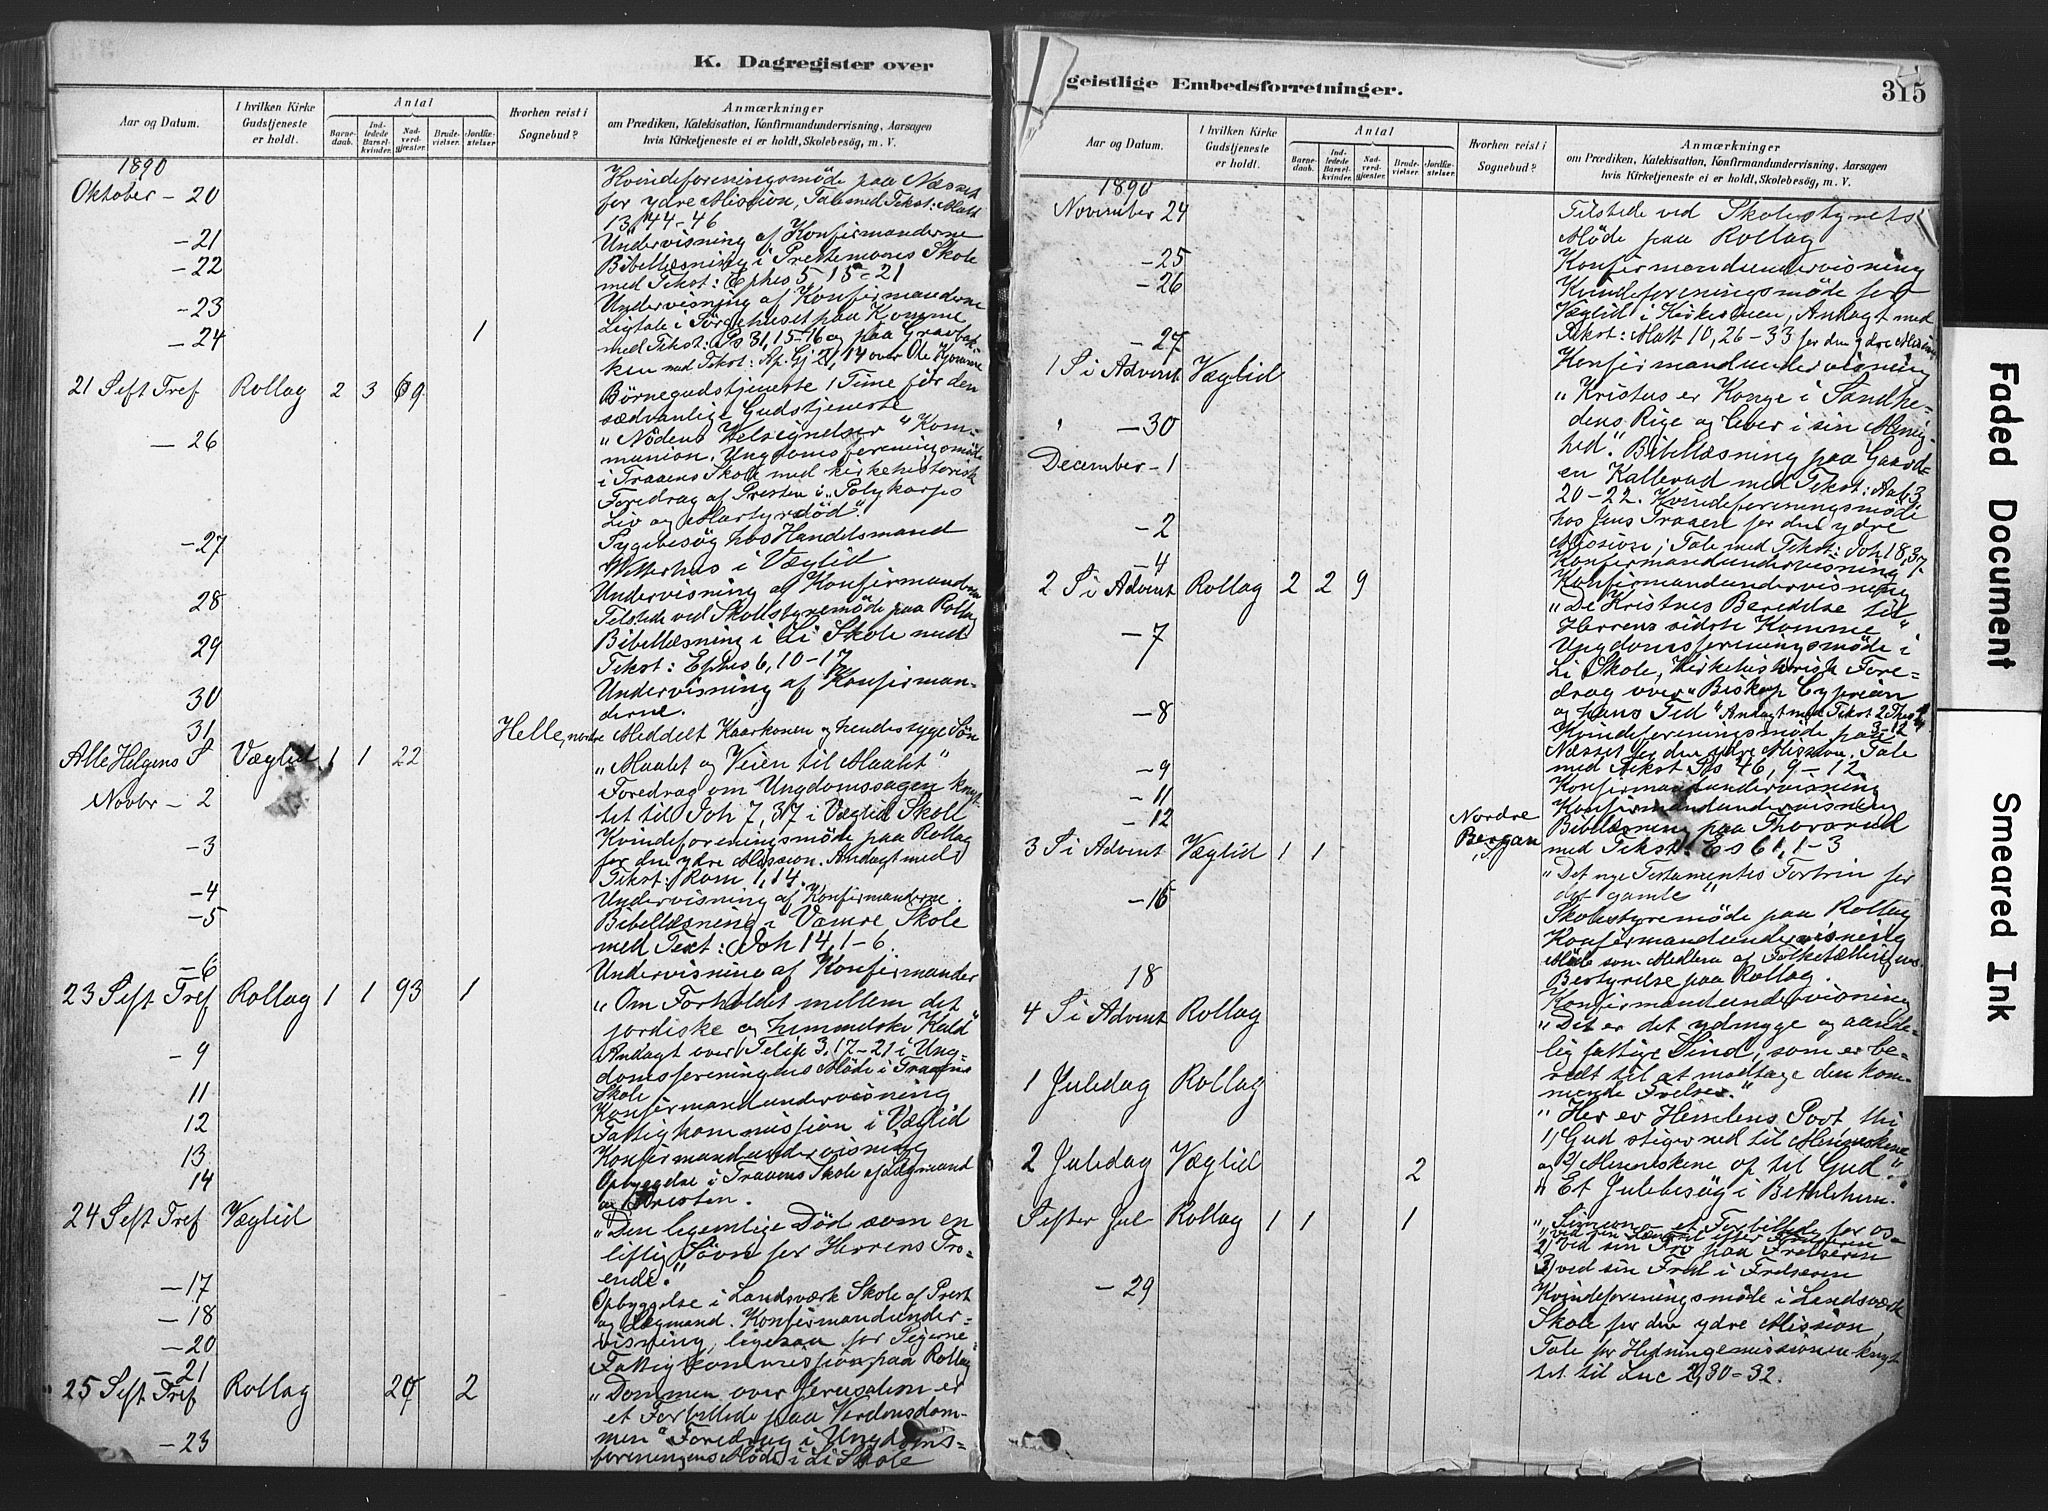 K. Dagregister over
Aar og Datum.
I hvilken Kirke Gudstjeneste er holdt.
Antal
Barnedaab.
Indledede Barselkvinder.
Nadverdgjæster.
Brudevielser.
Jordfæstelser
Hvorhen reist i Sognebud?
Anmærkninger
om Prædiken, Katekisation, Konfirmandundervisning, Aarsagen
hvis Kirketjeneste ei er holdt, Skolebesøg, m. V.
1890
Oktober - 20
Kvindeforeningsmøde paa Næsset
for ydre Mission, Tale med Tekst: Matt
13,44-46
- 21
Undervisning af Konfirmanderne
- 22
Bibellæsning i Prestemoens Skole
med Tekst: Ephes 5 15-21
- 23
Undervisning af Konfirmanderne
- 24 1
Ligtale i Sørgehuset paa Komme
med Tekst: Ps 31,15-16 og paa Gravbak-
ken med Tekst: Ap. Gj 21,14 over Ole
21 S eft Tref Rollag 2 3 69
Børnegudstjeneste 1 Time før den
sædvanlige Gudstjeneste
- 26
"Nødens Velsignelser" Kom-
munion. Ungdomsforeningsmøde
i Traaens Skole med kirkehistorisk
Foredrag af Presten i "Polykarps
Liv og Martyrdød".
- 27
Sygebesøg hos Handelsmand
Witterhus i Væglid
28
Undervisning af Konfirmanderne
Tilstede ved Skolestyremøde paa Rollag
29
Bibellæsning i Li Skole med
Tekst: Ephes 6,10-17
30
Undervisning af Konfirman-
derne.
31 Helle, nordre
Meddelt Kaarkonen og hendes syge Søn
Alle Helgens S Væglid 1 1 22
"Maalet og Veien til Maalet"
Novbr - 2
Foredrag om Ungdomssagen knyt-
tet til Joh 7,37 i Væglid Skole
- 3
Kvindeforeningsmøde paa Rollag
for den ydre Mission. Andagt med
Tekst: Rom 1,14.
- 4
Undervisning af Konfirmanderne.
- 5
Bibellæsning i Vamre Skole
med Text: Joh 14,1-6.
- 6
Undervisning af Konfirmander
23 S eft Tref Rollag 1 1 93 1
"Om Forholdet mellem det
jordiske og himmelske Kald"
- 9
Andagt over Filip 3.17-21 i Ung-
domsforeningens Møde i Traaens
Skole
11
Konfirmandundervisning
12
Fattigkommission i Væglid
13
Konfirmandundervisning
14
Opbyggelse i Traaens Skole af Lægmand
og Presten.
24 S eft Tref Væglid
"Den legemlige Død som en
liflig Søvn for Herrens Tro-
ende."
- 17
Opbyggelse i Landsværk Skole af Prest
- 18
og Lægmand. Konfirmandunder-
- 20
visning, ligesaa for Pigerne
- 21
Fattigkommission paa Rollag
25 S eft Tref Rollag 20 2
"Dommen over Jerusalem er
et Forbillede paa Verdensdom-
- 23
men" Foredrag i Ungdoms-
foreningens Møde i Li Skole
geistlige Embedsforretninger.
315
Aar og Datum.
I hvilken Kirke Gudstjeneste er holdt.
Antal
Barnedaab.
Indledede Barselkvinder.
Nadverdgjæster.
Brudevielser.
Jordfæstelser.
Hvorhen reist i Sognebud?
Anmærkninger
om Prædiken, Katekisation, Konfirmandundervisning, Aarsagen
hvis Kirketjeneste ei er holdt, Skolebesøg, m. V.
1890
November 24
Tilstede ved Skolestyrets
Møde paa Rollag
- 25
Konfirmandundervisning
- 26
Kvindeforeningsmøde for
Væglid i Kirkestuen, Andagt med
Tekst: Matt 10,26-33 for den ydre Mission
- 27
Konfirmandundervisning
1 S i Advent Væglid
"Kristus er Konge i Sandhe-
dens Rige og lever i sin Menig-
- 30
hed." Bibellæsning paa Gaard-
December - 1
en Kallerud med Tekst: Aab 3
20-22. Kvindeforeningsmøde
hos Jens Traaen for den ydre
Mission; Tale med Tekst: Joh 18,37.
- 2
Konfirmandundervisning
- 4
Konfirmandundervisning
2 S i Advent Rollag 2 2 9
"De Kristnes Beredelse til
Herrens sidste Komme"
- 7
Ungdomsforeningsmøde i
Li Skole, Kirkehistorisk Fore-
drag over "Biskop Cyprian
og hans Tid" Andagt med Tekst 2 Thes
3-12
- 8
Kvindeforeningsmøde paa
Næsset for den ydre Mission. Tale
med Tekst Ps 46, 9-12.
- 9
Konfirmandundervisning
- 11
Konfirmandundervisning
- 12 Nordre Bergan
Bibellæsning paa Thovsrud
med Tekst: Es 61,1-3
3 S i Advent Væglid 1 1
"Det nye Testamentes Fortrin for
det gamle"
- 16
Skolestyremøde paa Rollag
Konfirmandundervisning
Møde som Medlem af Folketællingens
Bestyrelse paa Rollag.
18
Konfirmandundervisning
4 S i Advent Rollag
"Det er det ydmyge og aande-
lig fattige Sind, som er be-
redt til at modtage den kom-
mende Frelser."
1 Juledag Rollag
"Her er Himlens Port thi
1) Gud stiger ned til Menneskene
og 2) Menneskene op til Gud."
2 Juledag Væglid 2
"Et Julebesøg i Bethlehem."
S efter Jul Rollag 1 1 1
"Simeon et Forbillede for os
1) ved sin Længsel efter Frelseren
2) ved sin Tro paa Frelseren
3) ved sin Fred i Frelseren
- 29
Kvindeforeningsmøde i Landsværk
Skole for den ydre Mission,
Tale for Hedningemissionen knyt
tet til Luc 2,30-32.
Faded Document
Smeared Ink